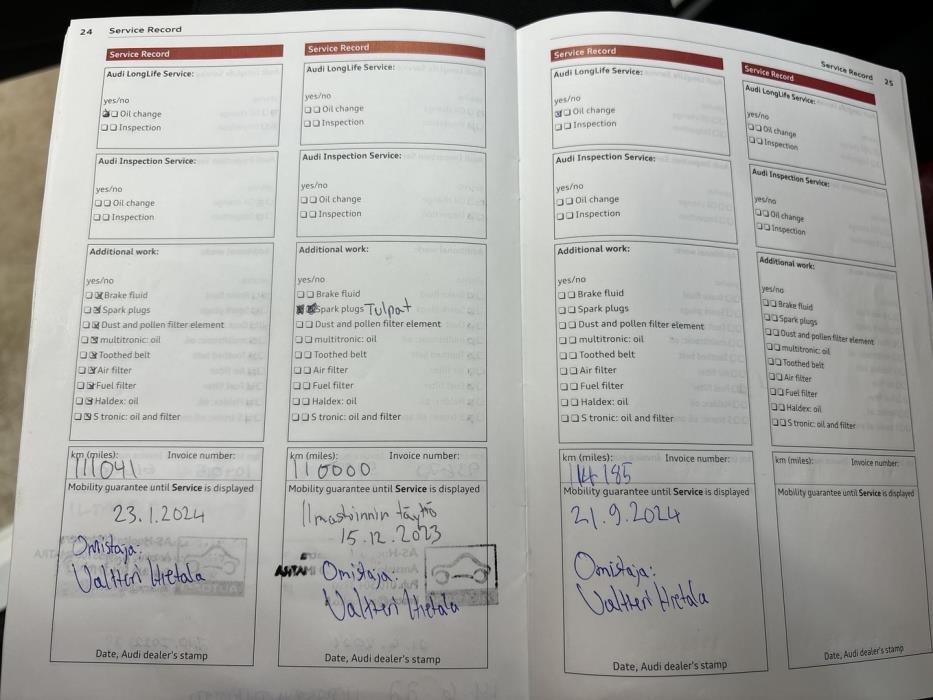 24 Service Record
Service Record
Audi LongLife Service:
yes/no
Oil change
Inspection
Audi Inspection Service:
yes/no
Oil change
Inspection
Additional work:
yes/no
Brake fluid
Spark plugs
Dust and pollen filter element
multitronic: oil
Toothed belt
Air filter
Fuel filter
Haldex: oil
S tronic: oil and filter
km (miles): Invoice number:
111041
Mobility guarantee until Service is displayed
23.1.2024
Omistaja:
Valtteri Hietala
Date, Audi dealer's stamp
Service Record
Audi LongLife Service:
yes/no
Oil change
Inspection
Audi Inspection Service:
yes/no
Oil change
Inspection
Additional work:
yes/no
Brake fluid
Spark plugs Tulpat
Dust and pollen filter element
multitronic: oil
Toothed belt
Air filter
Fuel filter
Haldex: oil
S tronic: oil and filter
km (miles): Invoice number:
110000
Mobility guarantee until Service is displayed
Ilmastoinnin täyttö
15.12.2023
Omistaja:
Valtteri Hietala
Date, Audi dealer's stamp
Service Record 25
Service Record
Audi LongLife Service:
yes/no
Oil change
Inspection
Audi Inspection Service:
yes/no
Oil change
Inspection
Additional work:
yes/no
Brake fluid
Spark plugs
Dust and pollen filter element
multitronic: oil
Toothed belt
Air filter
Fuel filter
Haldex: oil
S tronic: oil and filter
km (miles): Invoice number:
114185
Mobility guarantee until Service is displayed
21.9.2024
Omistaja:
Valtteri Hietala
Date, Audi dealer's stamp
Service Record
Audi LongLife Service:
yes/no
Oil change
Inspection
Audi Inspection Service:
yes/no
Oil change
Inspection
Additional work:
yes/no
Brake fluid
Spark plugs
Dust and pollen filter element
multitronic: oil
Toothed belt
Air filter
Fuel filter
Haldex: oil
S tronic: oil and filter
km (miles): Invoice number:
Mobility guarantee until Service is displayed
Date, Audi dealer's stamp